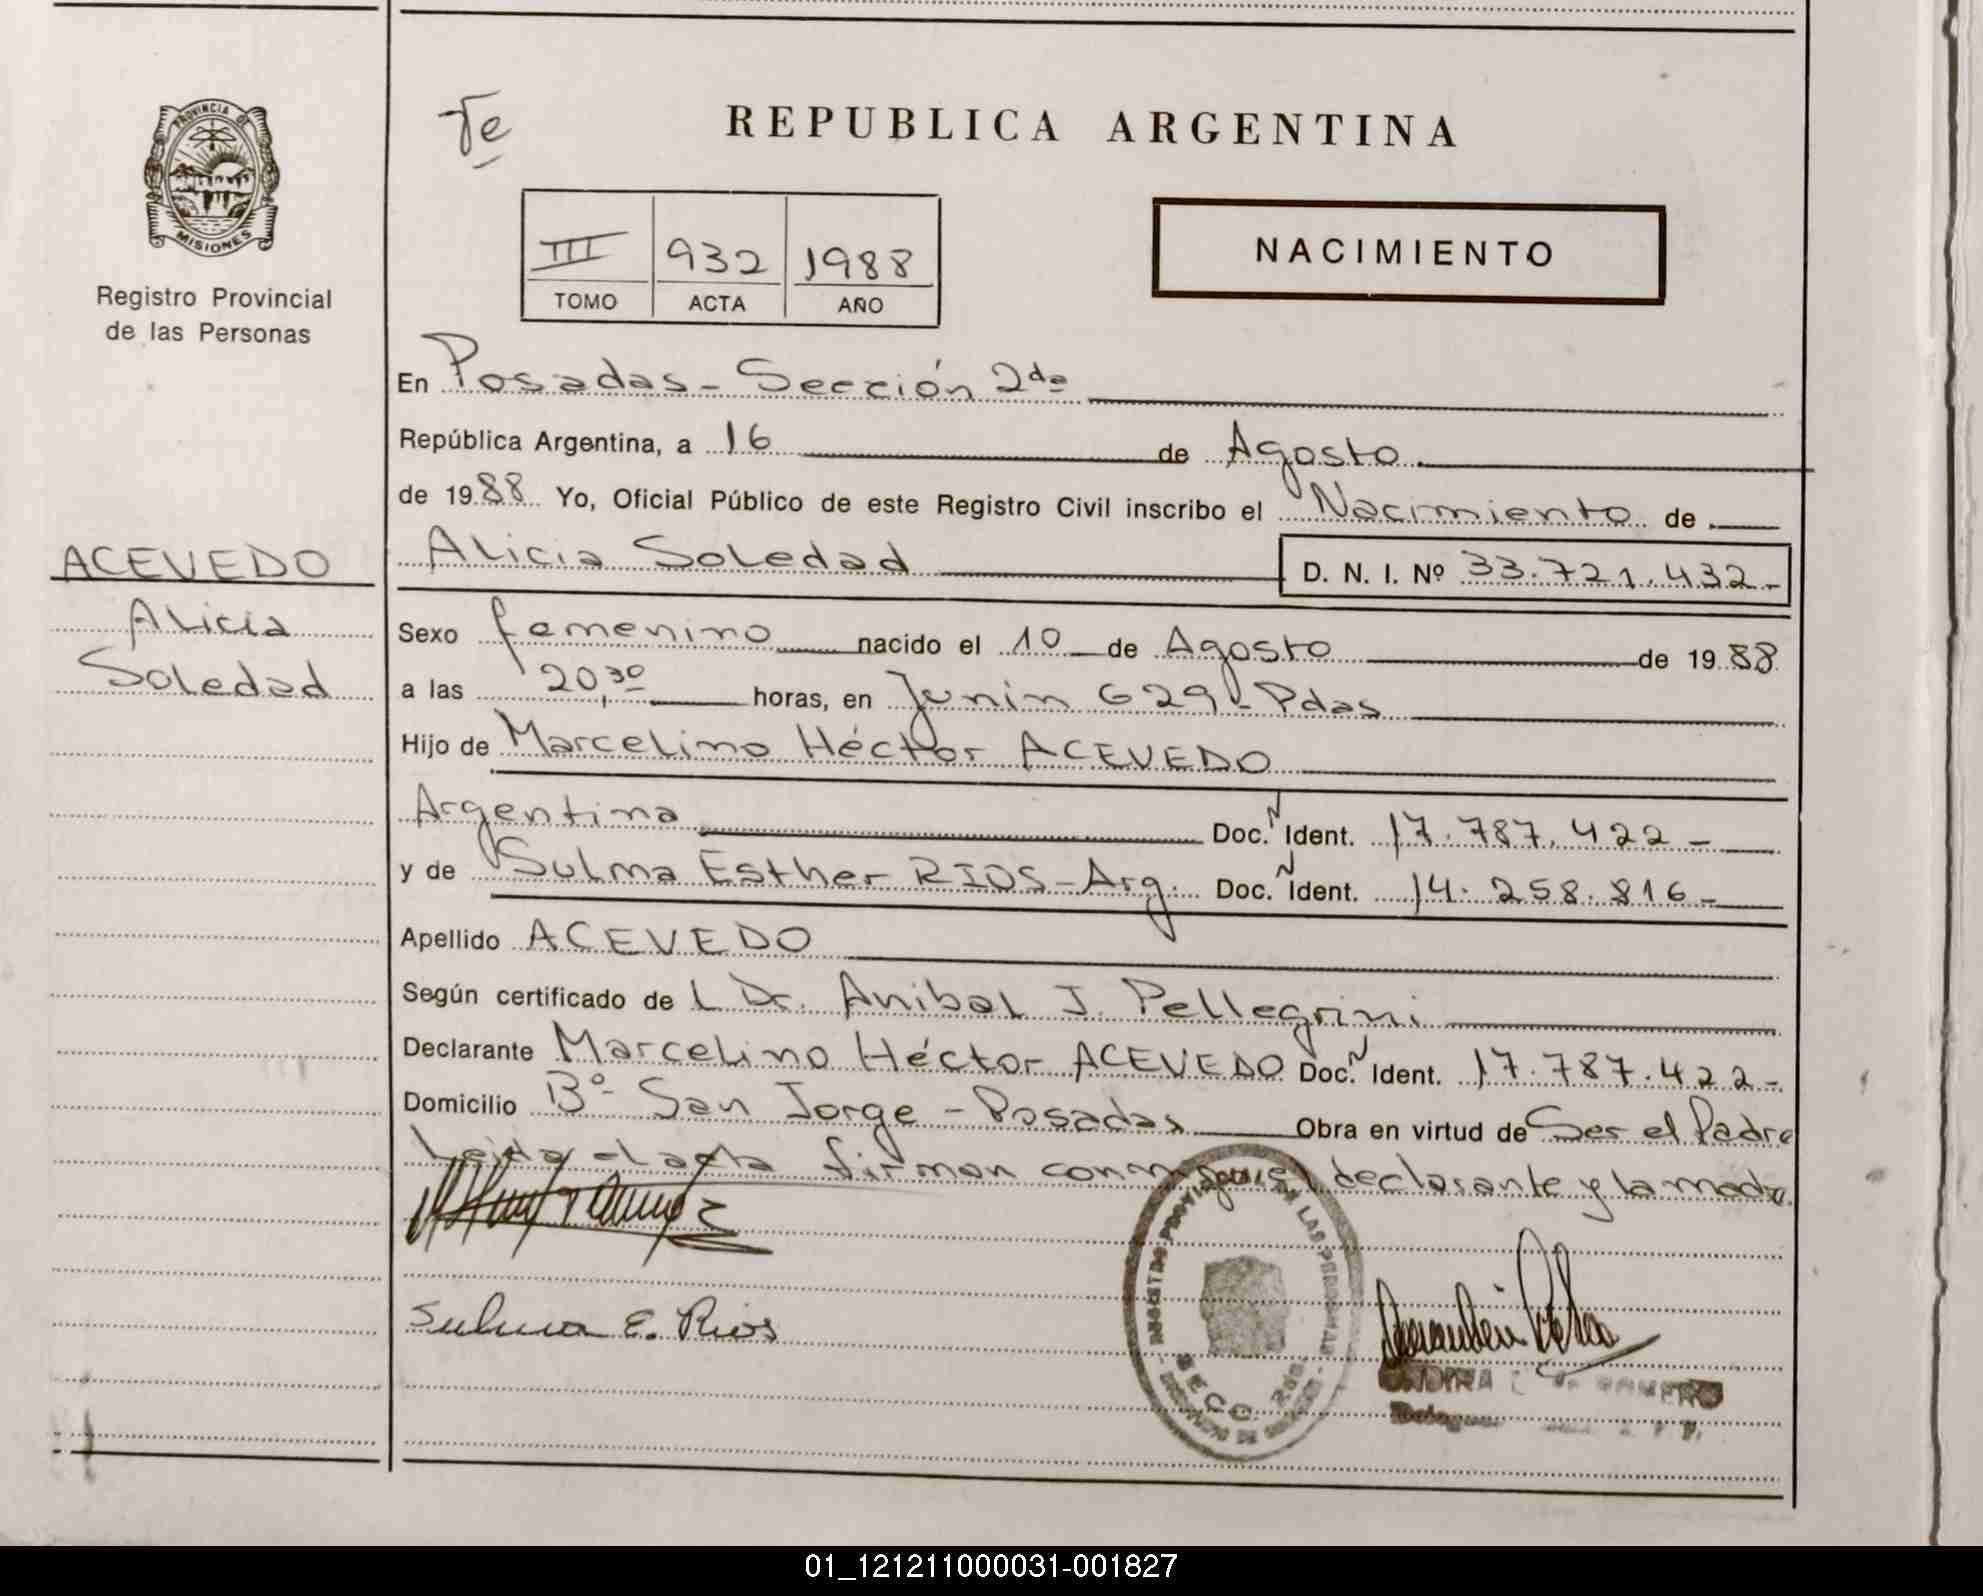 PROVINCIA DE
MISIONES
Registro Provincial
de las Personas
ACEVEDO
Alicia
Soledad
REPUBLICA ARGENTINA
III 932 1988
TOMO ACTA AÑO
NACIMIENTO
En Posadas - Sección 2da
República Argentina, a 16 de Agosto
de 1988 Yo, Oficial Público de este Registro Civil inscribo el Nacimiento de
Alicia Soledad D. N. I. Nº 33.721.432-
Sexo femenino nacido el 10 de Agosto de 1988
a las 20,30 horas, en Junin 629 - Pdas
Hijo de Marcelino Héctor ACEVEDO
Argentina Doc. N Ident. 17.787.422 -
y de Sulma Esther RIOS - Arg. Doc. N Ident. 14.258.816 -
Apellido ACEVEDO
Según certificado de L Dr. Anibal J. Pellegrini
Declarante Marcelino Héctor ACEVEDO Doc. N Ident. 17.787.422 -
Domicilio Bº San Jorge - Posadas Obra en virtud de Ser el Padre
Leida el acta firman conmigo el declarante y la madre.
Sulma E. Rios
REGISTRO PROVINCIAL DE LAS PERSONAS
SECC. 2da
01_121211000031-001827